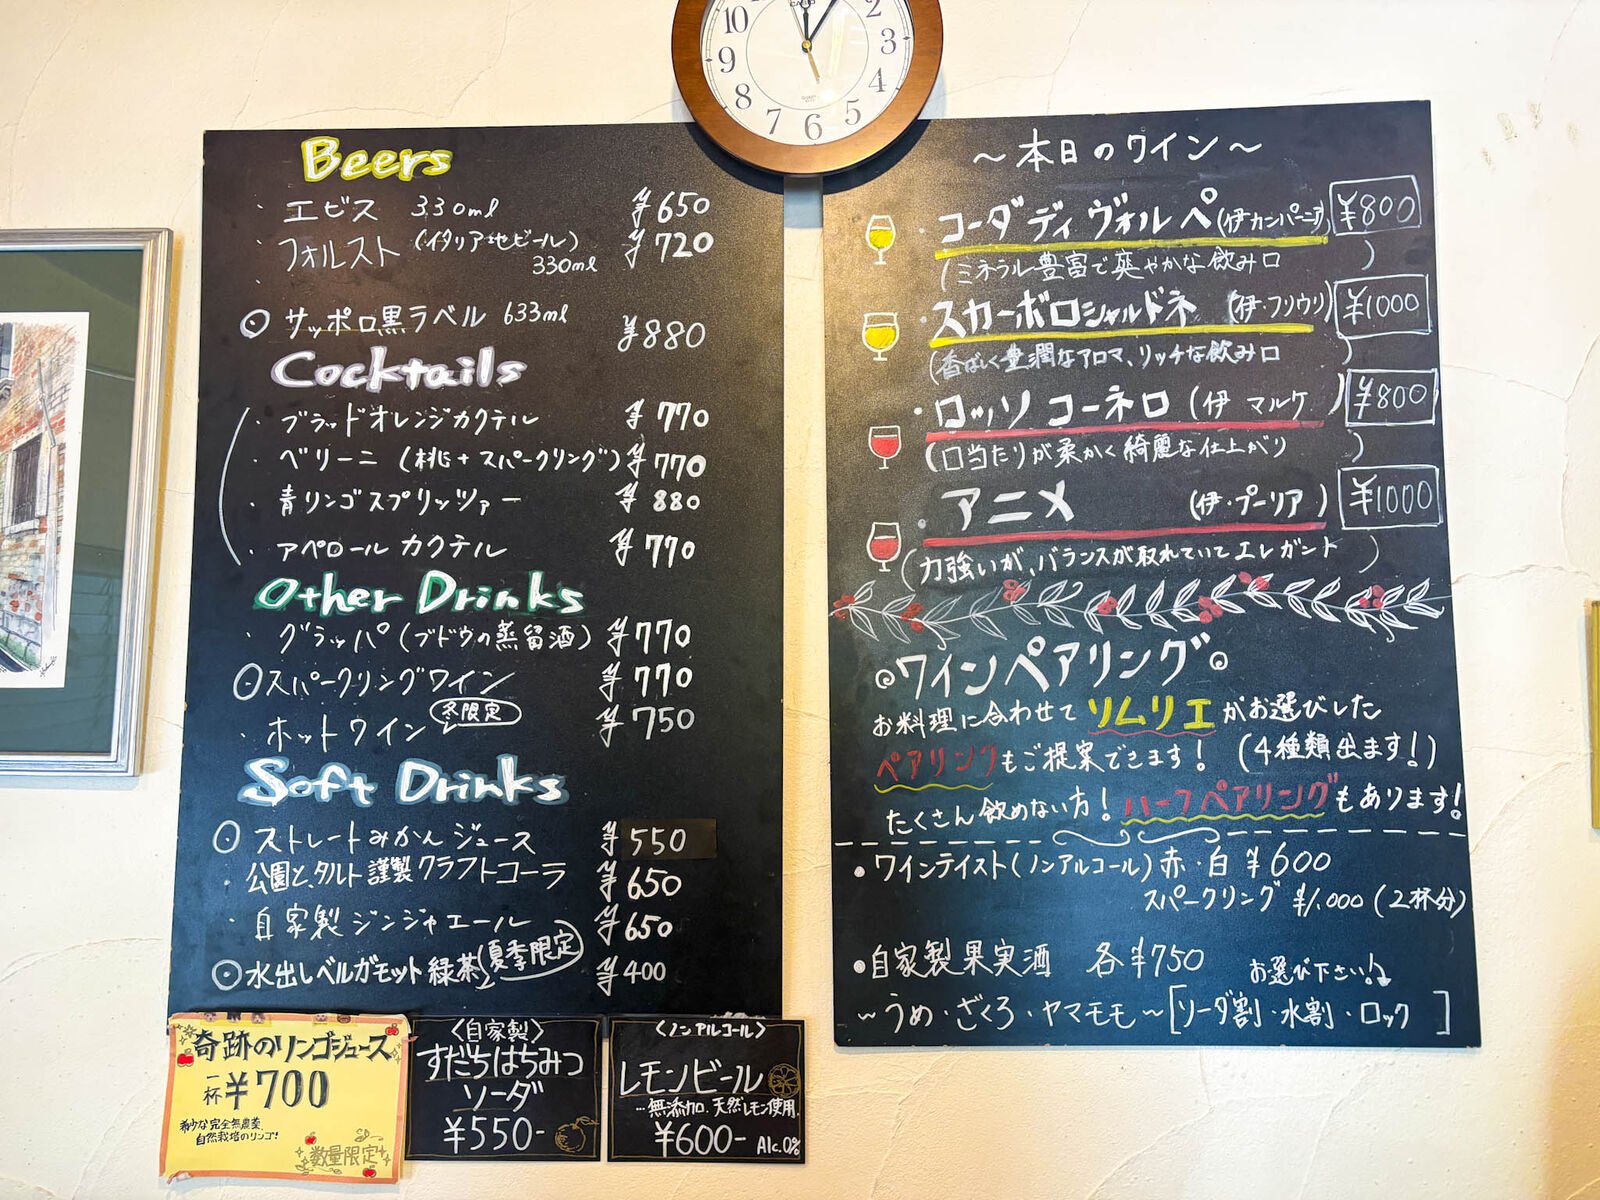 10 2
9 3
8 4
7 6 5
Beers
・エビス 330ml ¥650
・フォルスト(イタリア地ビール) 330ml ¥720
◎サッポロ黒ラベル 633ml ¥880
Cocktails
・ブラッドオレンジカクテル ¥770
・ベリーニ(桃+スパークリング) ¥770
・青リンゴスプリッツァー ¥880
・アペロールカクテル ¥770
Other Drinks
・グラッパ(ブドウの蒸留酒) ¥770
◎スパークリングワイン ¥770
・ホットワイン 冬限定 ¥750
Soft Drinks
◎ストレートみかんジュース ¥550
・公園と、タルト謹製クラフトコーラ ¥650
・自家製ジンジャエール ¥650
◎水出しベルガモット緑茶 夏季限定 ¥400
奇跡のリンゴジュース
一杯¥700
希少な完全無農薬
自然栽培のリンゴ!
数量限定
〈自家製〉
すだちはちみつ
ソーダ
¥550-
〈ノンアルコール〉
レモンビール
…無添加、天然レモン使用
¥600- Alc.0%
〜本日のワイン〜
・コーダディヴォルペ(伊カンパーニア) ¥800
(ミネラル豊富で爽やかな飲み口)
・スカーボロシャルドネ(伊・フリウリ) ¥1000
(香ばしく豊潤なアロマ、リッチな飲み口)
・ロッソコーネロ(伊 マルケ) ¥800
(口当たりが柔かく綺麗な仕上がり)
・アニメ(伊・プーリア) ¥1000
(力強いが、バランスが取れていてエレガント)
ワインペアリング
お料理に合わせてソムリエがお選びした
ペアリングもご提案できます!(4種類出ます!)
たくさん飲めない方!ハーフペアリングもあります!
・ワインテイスト(ノンアルコール)赤・白¥600
スパークリング ¥1,000(2杯分)
・自家製果実酒 各¥750 お選び下さい!
〜うめ・ざくろ・ヤマモモ〜[ソーダ割・水割・ロック]